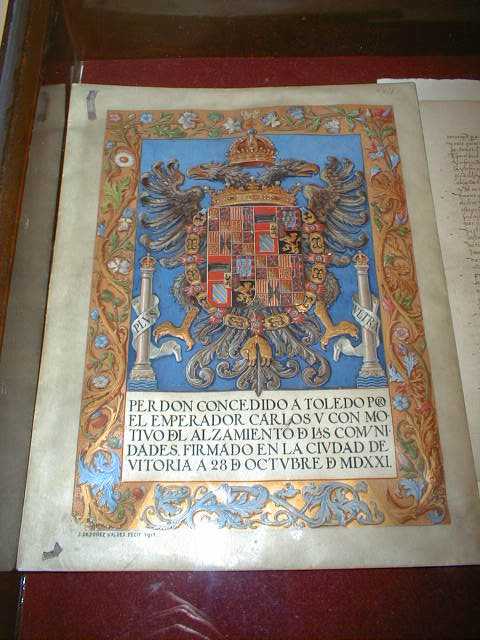 PLVS
VLTR
PERDON CONCEDIDO A TOLEDO PO
EL EMPERADOR CARLOS V CON MO
TIVO DL ALZAMIENTO D LAS COMVNI
DADES, FIRMADO EN LA CIVDAD DE
VITORIA A 28 D OCTVBRE D MDXXI.